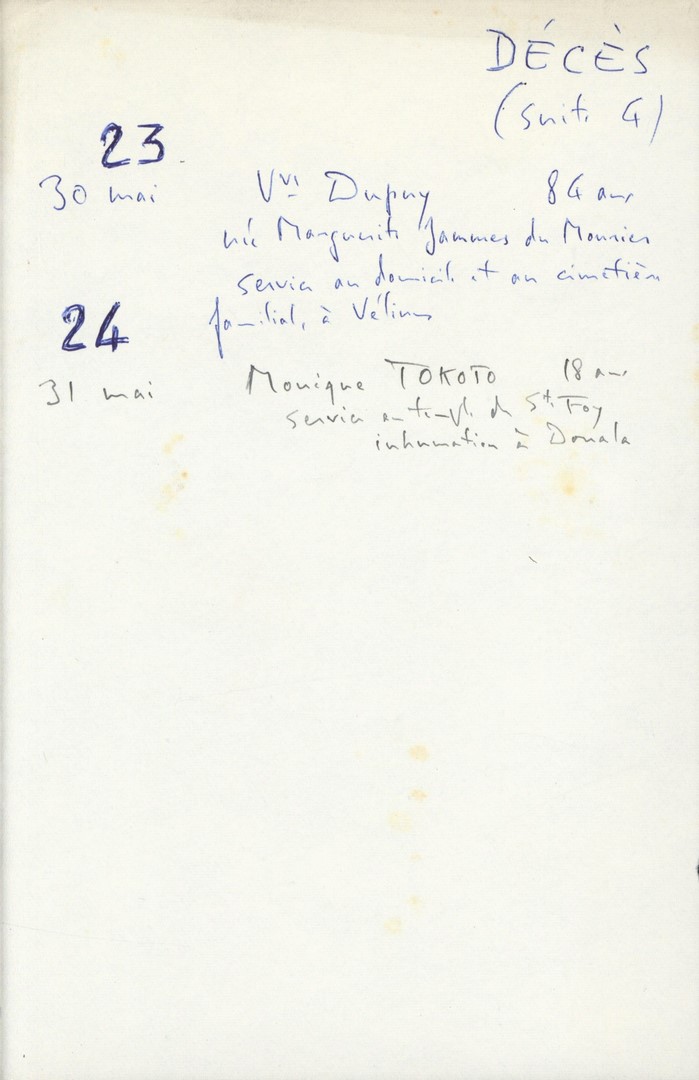 DÉCÈS
(suite 4)
23
30 mai Vve Dupuy 84 ans
née Marguerite Jammes du Mourier
service au domicile et au cimetière
24
familial, à Vélines
31 mai Monique TOKOTO 18 ans
service au temple de Ste Foy
inhumation à Douala